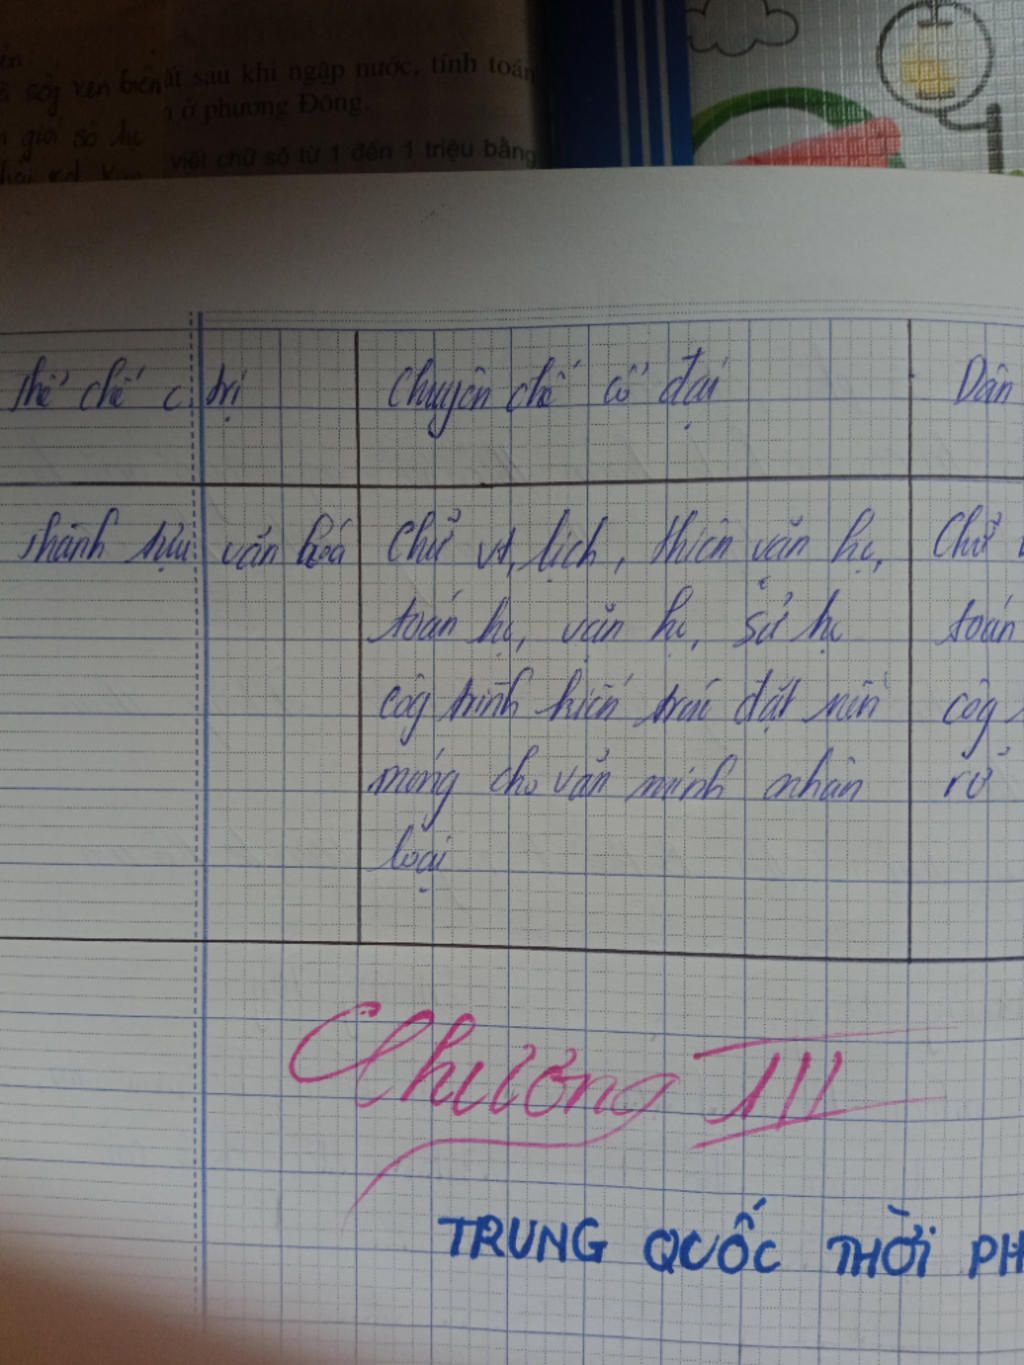 ất sau khi ngập nước, tính toán
ở phương Đông.
viết chữ số từ 1 đến 1 triệu bằng
sôg ven biên
Thể chế c trị
Chuyên chế cổ đại
Dân
Thành tựu văn hoá
Chữ vt, lịch, thiên văn họ,
toán họ, văn họ, sử họ
côg trình kiến trúc đặt nền
móng cho văn minh nhân
loại
Chữ
toán
côg
rỡ
Chương III
TRUNG QUỐC THỜI PH